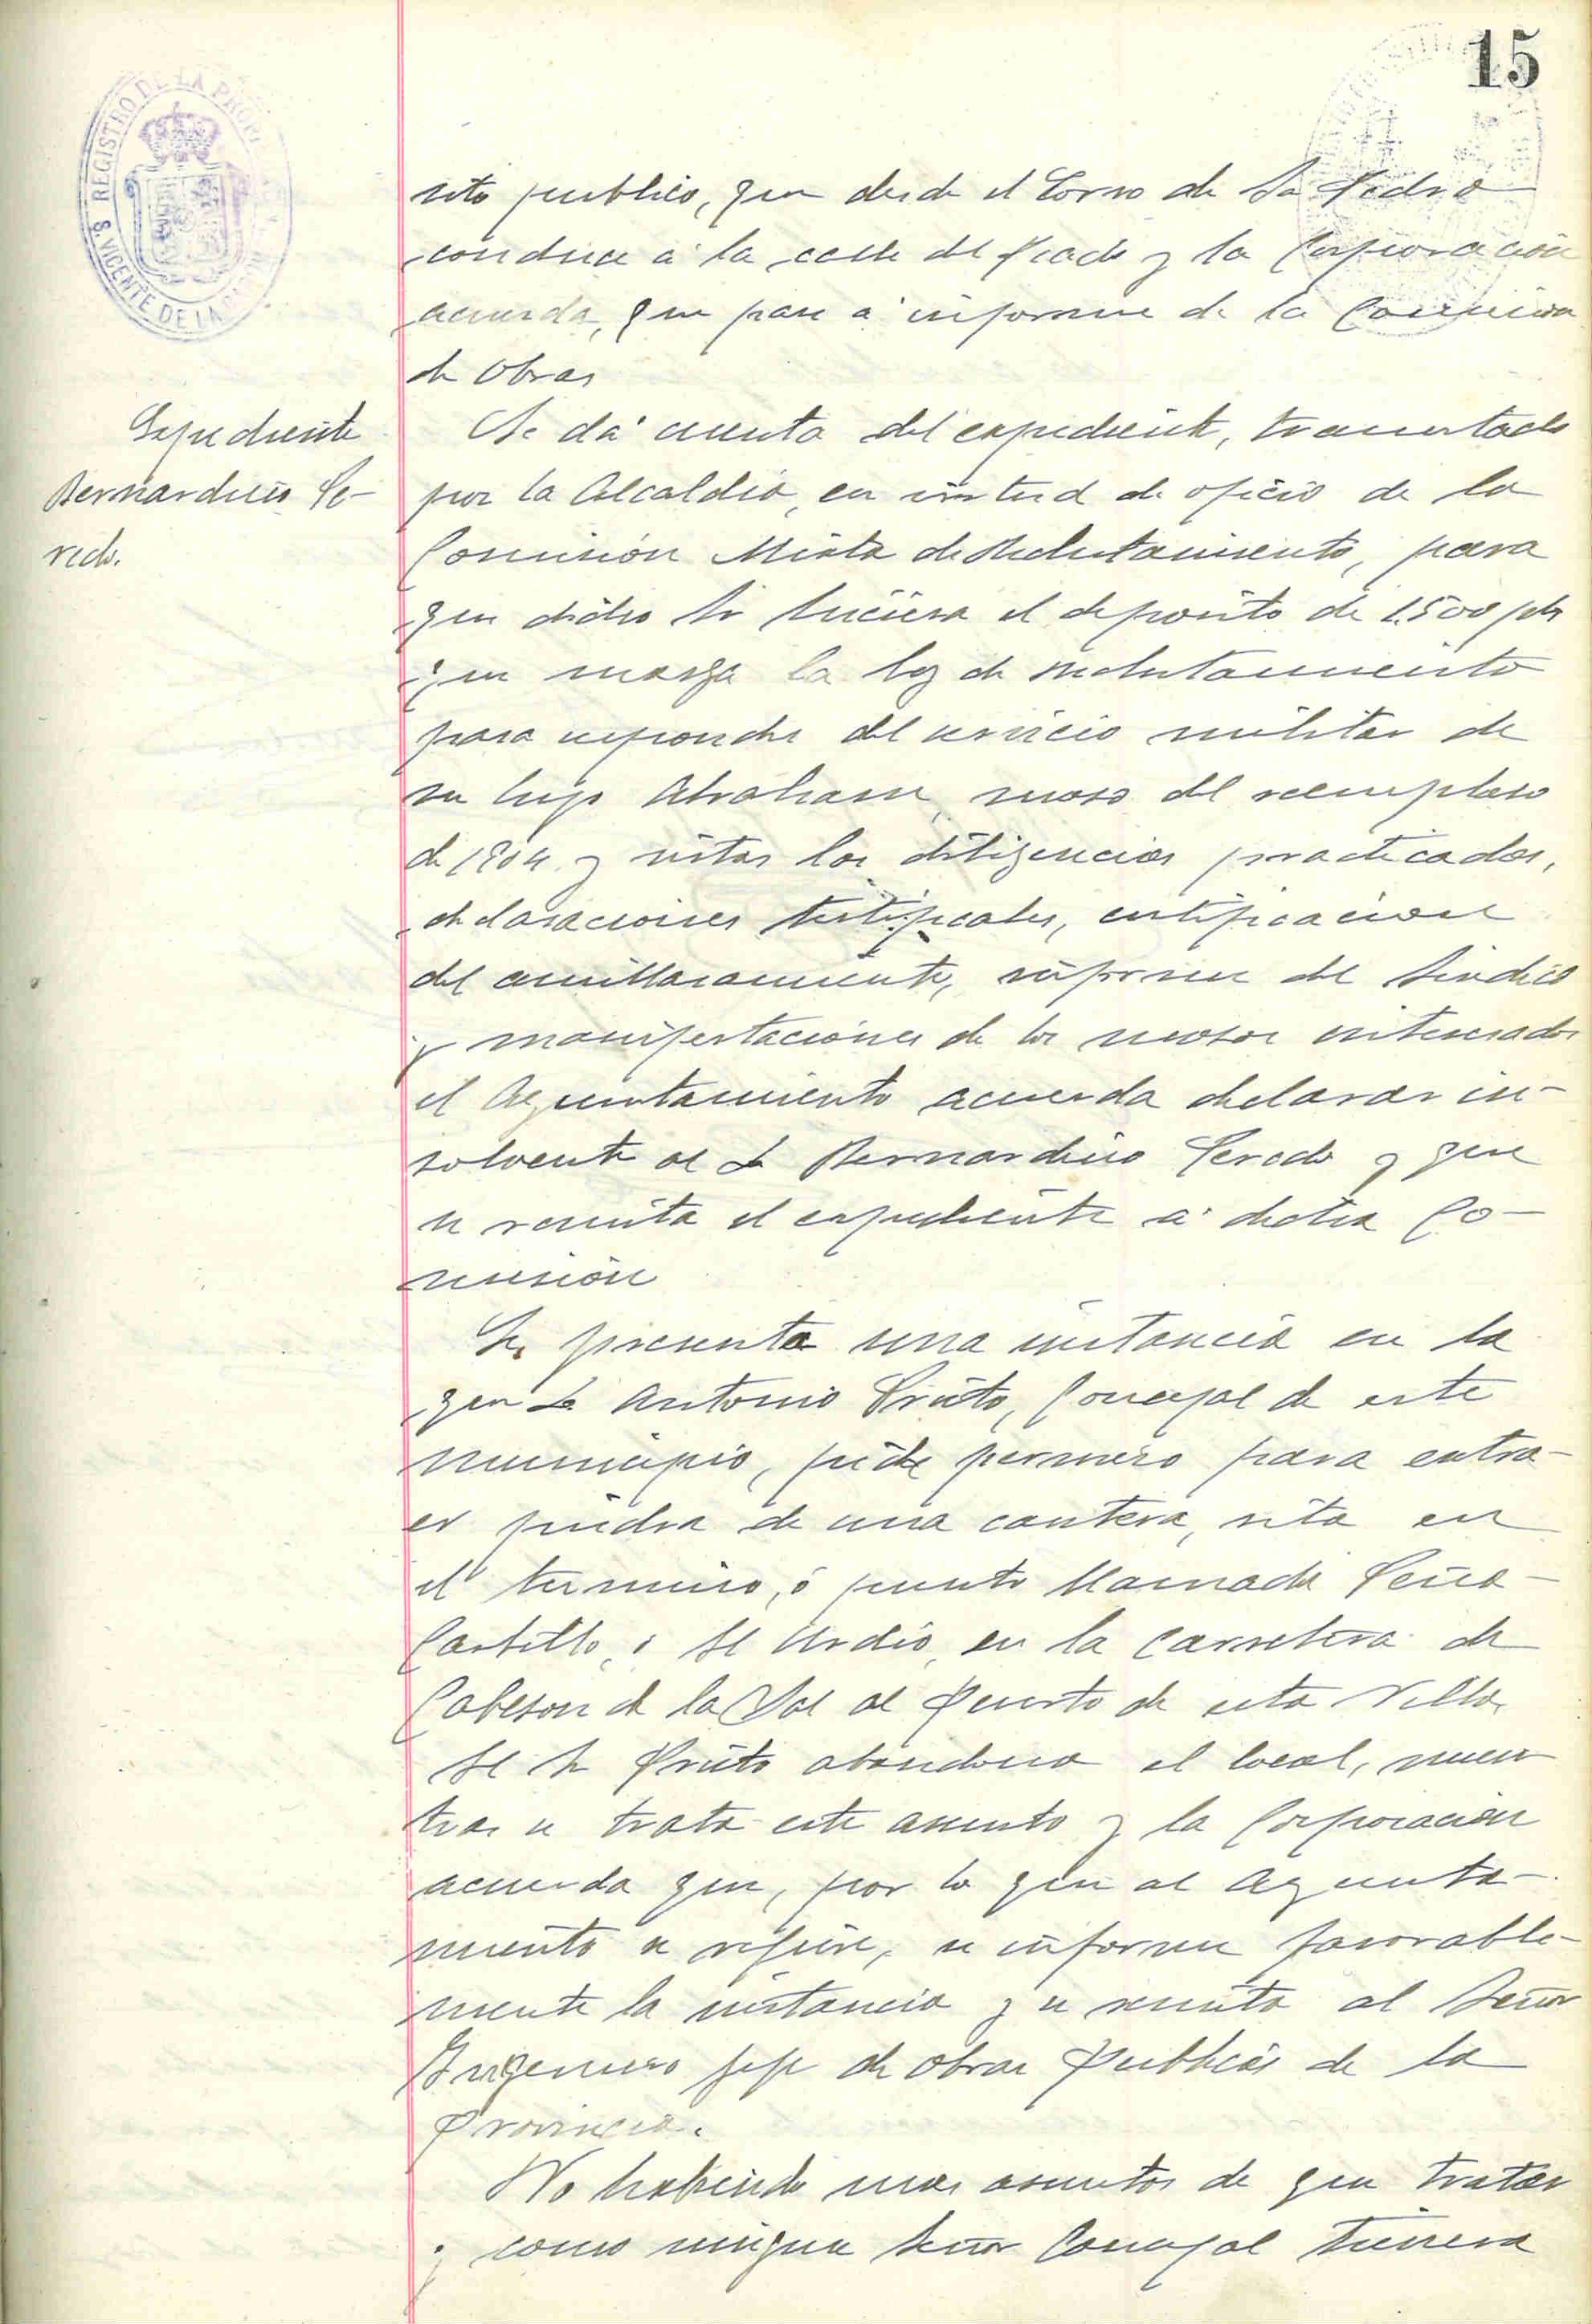 15
S. REGISTRO DE LA PROPIEDAD
S. VICENTE DE LA BARQUERA
sito publico, que desde el Corro de San Pedro
conduce á la calle del Prado y la Corporación
acuerda, que pase á informe de la Comision
de Obras
Expediente
Bernardino Ce-
redo.
Se dá cuenta del expediente, tramitado
por la Alcaldia, en virtud de oficio de la
Comisión Mixta de Reclutamiento, para
que dicho Sr hiciera el deposito de 1.500 pts
que marca la ley de reclutamiento
para responder del servicio militar de
su hijo Abraham, mozo del reemplazo
de 1904 y vistas las diligencias practicadas,
declaraciones testificales, certificacion
del amillaramiento, informe del Sindico
y manifestaciones de los mozos interesados
el Ayuntamiento acuerda declarar in-
solvente al D. Bernardino Ceredo y que
se remita el expediente á dicha Co-
mision
Se presenta una instancia en la
que D. Antonio Prieto, Concejal de este
municipio, pide permiso para extra-
er piedra de una cantera, sita en
el termino, ó punto llamado Peña-
Castillo, ó el Urdio, en la carretera de
Cabezon de la Sal al Puerto de esta Villa.
El Sr Prieto abandona el local, mien
tras se trata este asunto y la Corporacion
acuerda que, por lo que al Ayunta-
miento se refiere, se informe favorable-
mente la instancia y se remita al Señor
Ingeniero jefe de obras Publicas de la
Provincia.
No habiendo mas asuntos de que tratar
y como ningun Señor Concejal tuviera